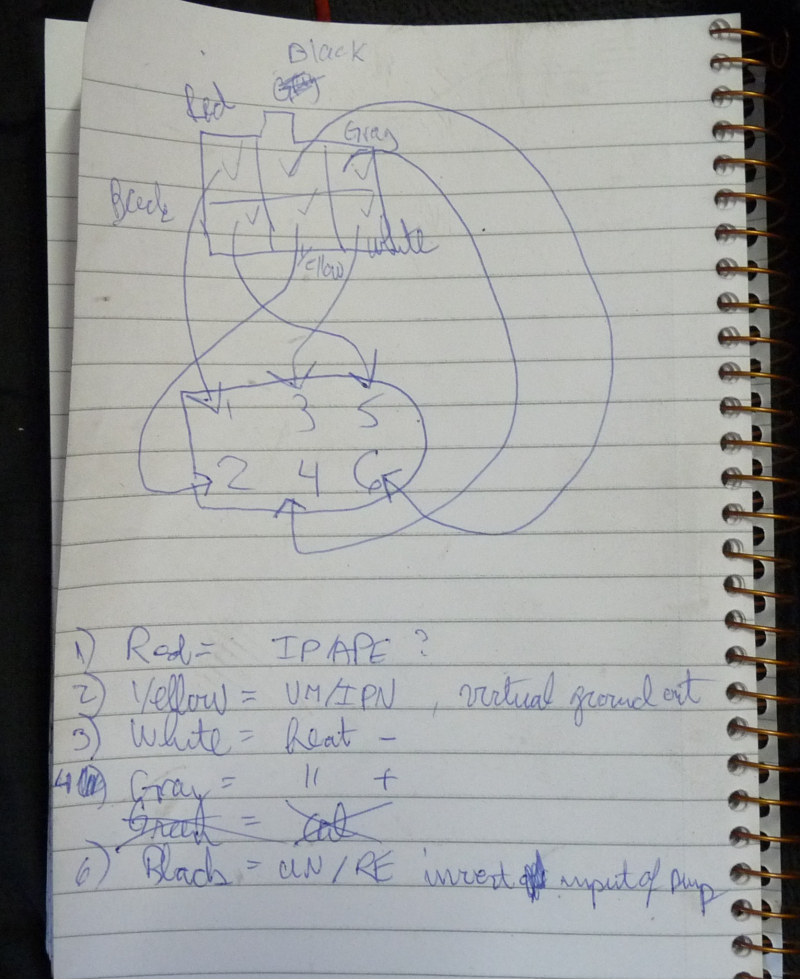 Black
Red
Gray
Black
Yellow
White
1 3 5
2 4 6
1) Red = IP/APE ?
2) Yellow = VM/IPN , virtual ground out
3) White = heat -
4) Gray = 11 +
=
6) Black = UN/RE invert input of pump